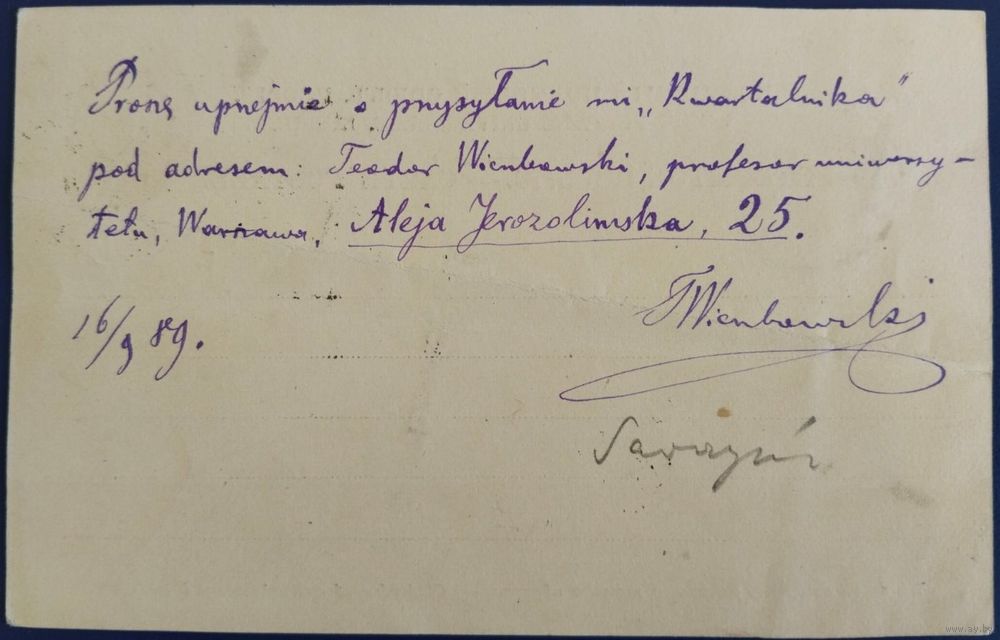 Proszę uprzejmie o przysyłanie mi „Kwartalnika"
pod adresem: Teodor Wierzbowski, profesor uniwersy-
tetu, Warszawa, Aleja Jerozolimska, 25.
TWierzbowski
16/9 89.
www.ay.by